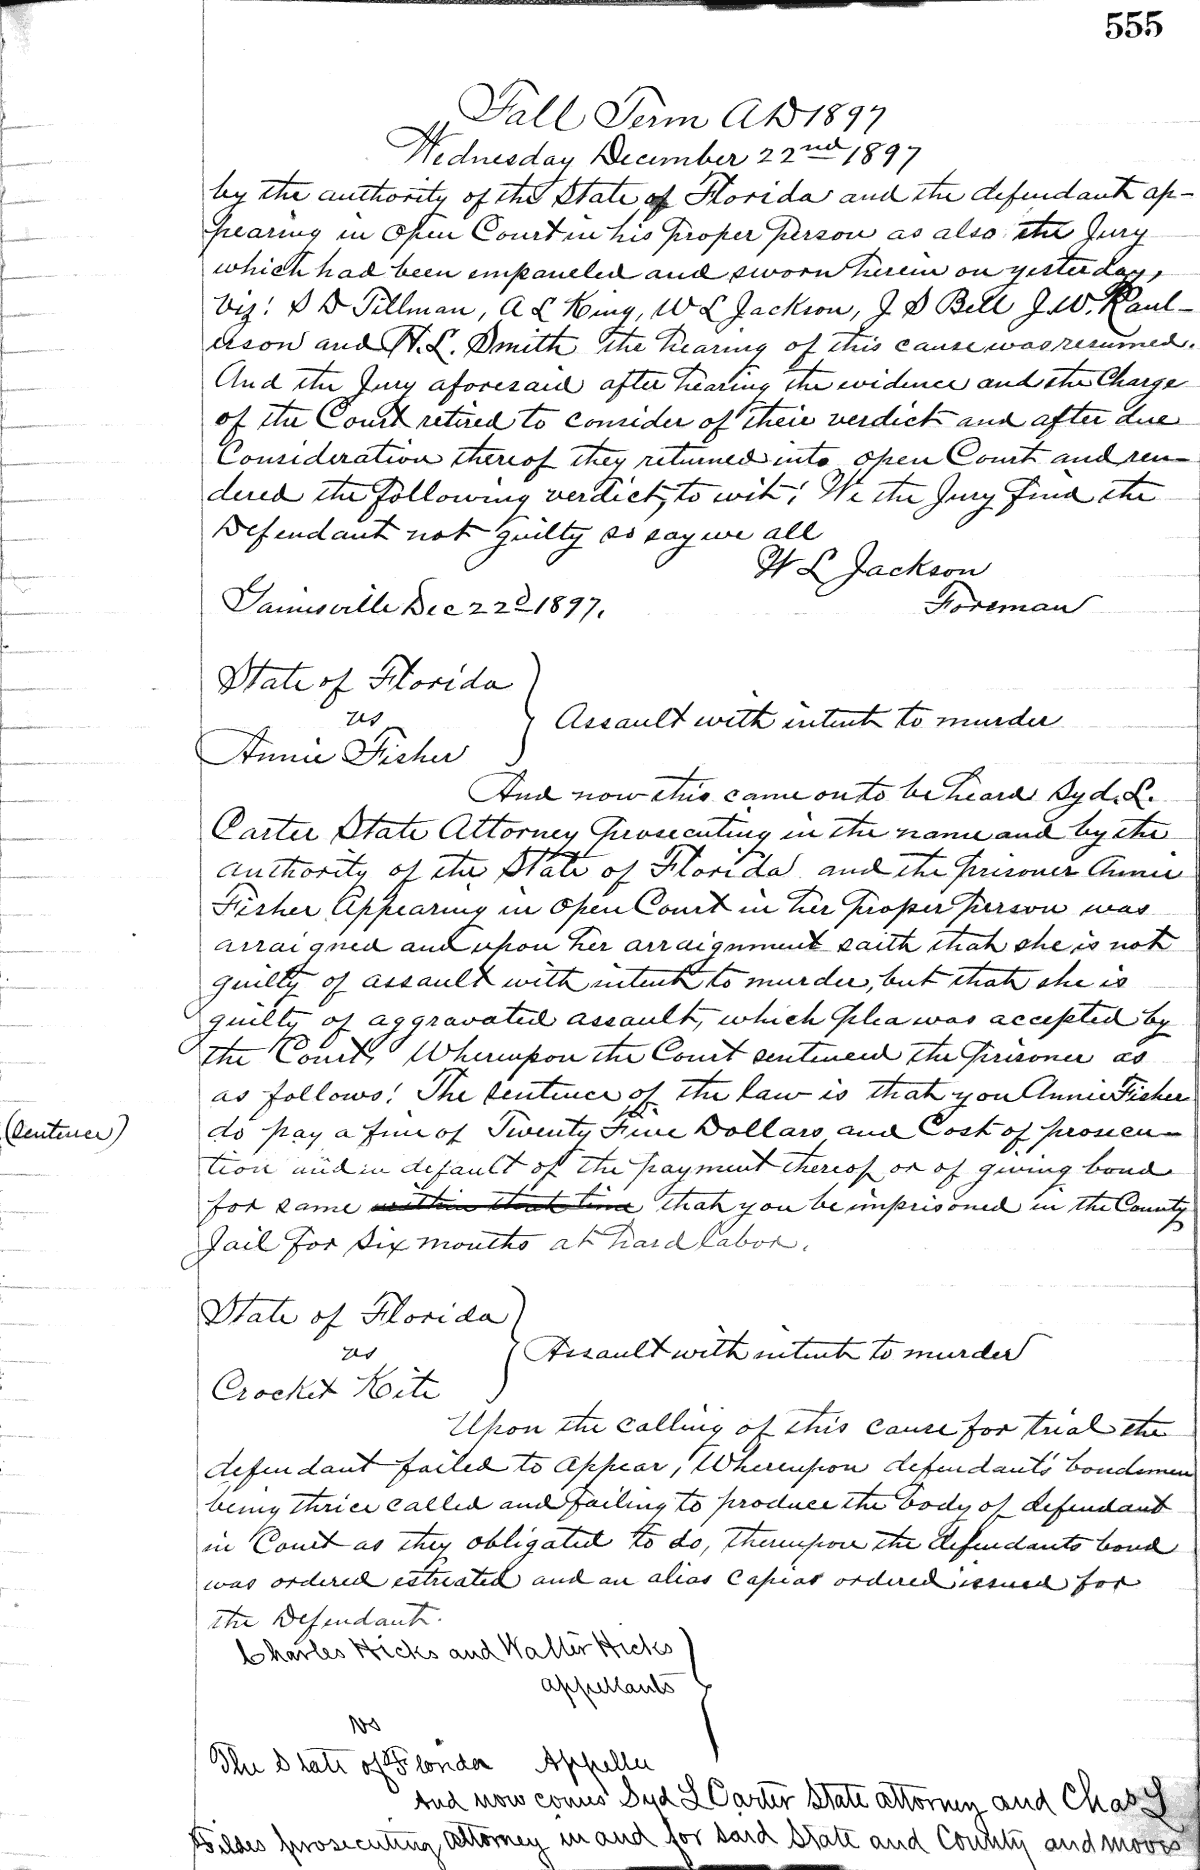 555
Fall Term A D 1897
Wednesday December 22nd 1897
by the authority of the State of Florida and the defendant ap-
pearing in open Court in his proper person as also the Jury
which had been empaneled and sworn herein on yesterday,
viz: S D Tillman, A L King, W L Jackson, J S Bell J. W. Raul-
erson and H. L. Smith the hearing of this cause was resumed.
And the Jury aforesaid after hearing the evidence and the Charge
of the Court retired to consider of their verdict and after due
Consideration thereof they returned into open Court and ren-
dered the following verdict, to wit; We the Jury find the
Defendant not guilty so say we all
W L Jackson
Gainesville Dec 22d 1897. Foreman
State of Florida
vs } Assault with intent to murder
Annie Fisher
And now this came on to be heard Syd. L.
Carter State Attorney prosecuting in the name and by the
authority of the State of Florida and the prisoner Annie
Fisher Appearing in open Court in her proper person was
arraigned and upon her arraignment saith that she is not
guilty of assault with intent to murder, but that she is
guilty of aggravated assault, which plea was accepted by
the Court, Whereupon the Court sentenced the prisoner as
as follows! The sentence of the law is that you Annie Fisher
(Sentence) do pay a fine of Twenty Five Dollars and Cost of prosecu-
tion and in default of the payment thereof or of giving bond
for same within that time that you be imprisoned in the County
Jail for six months at hard labor.
State of Florida
vs } Assault with intent to murder
Crocket Kite
Upon the calling of this cause for trial the
defendant failed to appear, Whereupon defendants' bondsmen
being thrice called and failing to produce the body of defendant
in Court as they obligated to do, thereupon the defendants bond
was ordered estreated and an alias Capias ordered issued for
the Defendant.
Charles Hicks and Walter Hicks
appellants }
vs
The State of Florida Appellee
And now comes Syd L Carter State attorney and Chas L
Fildes prosecuting attorney in and for said State and County and moves